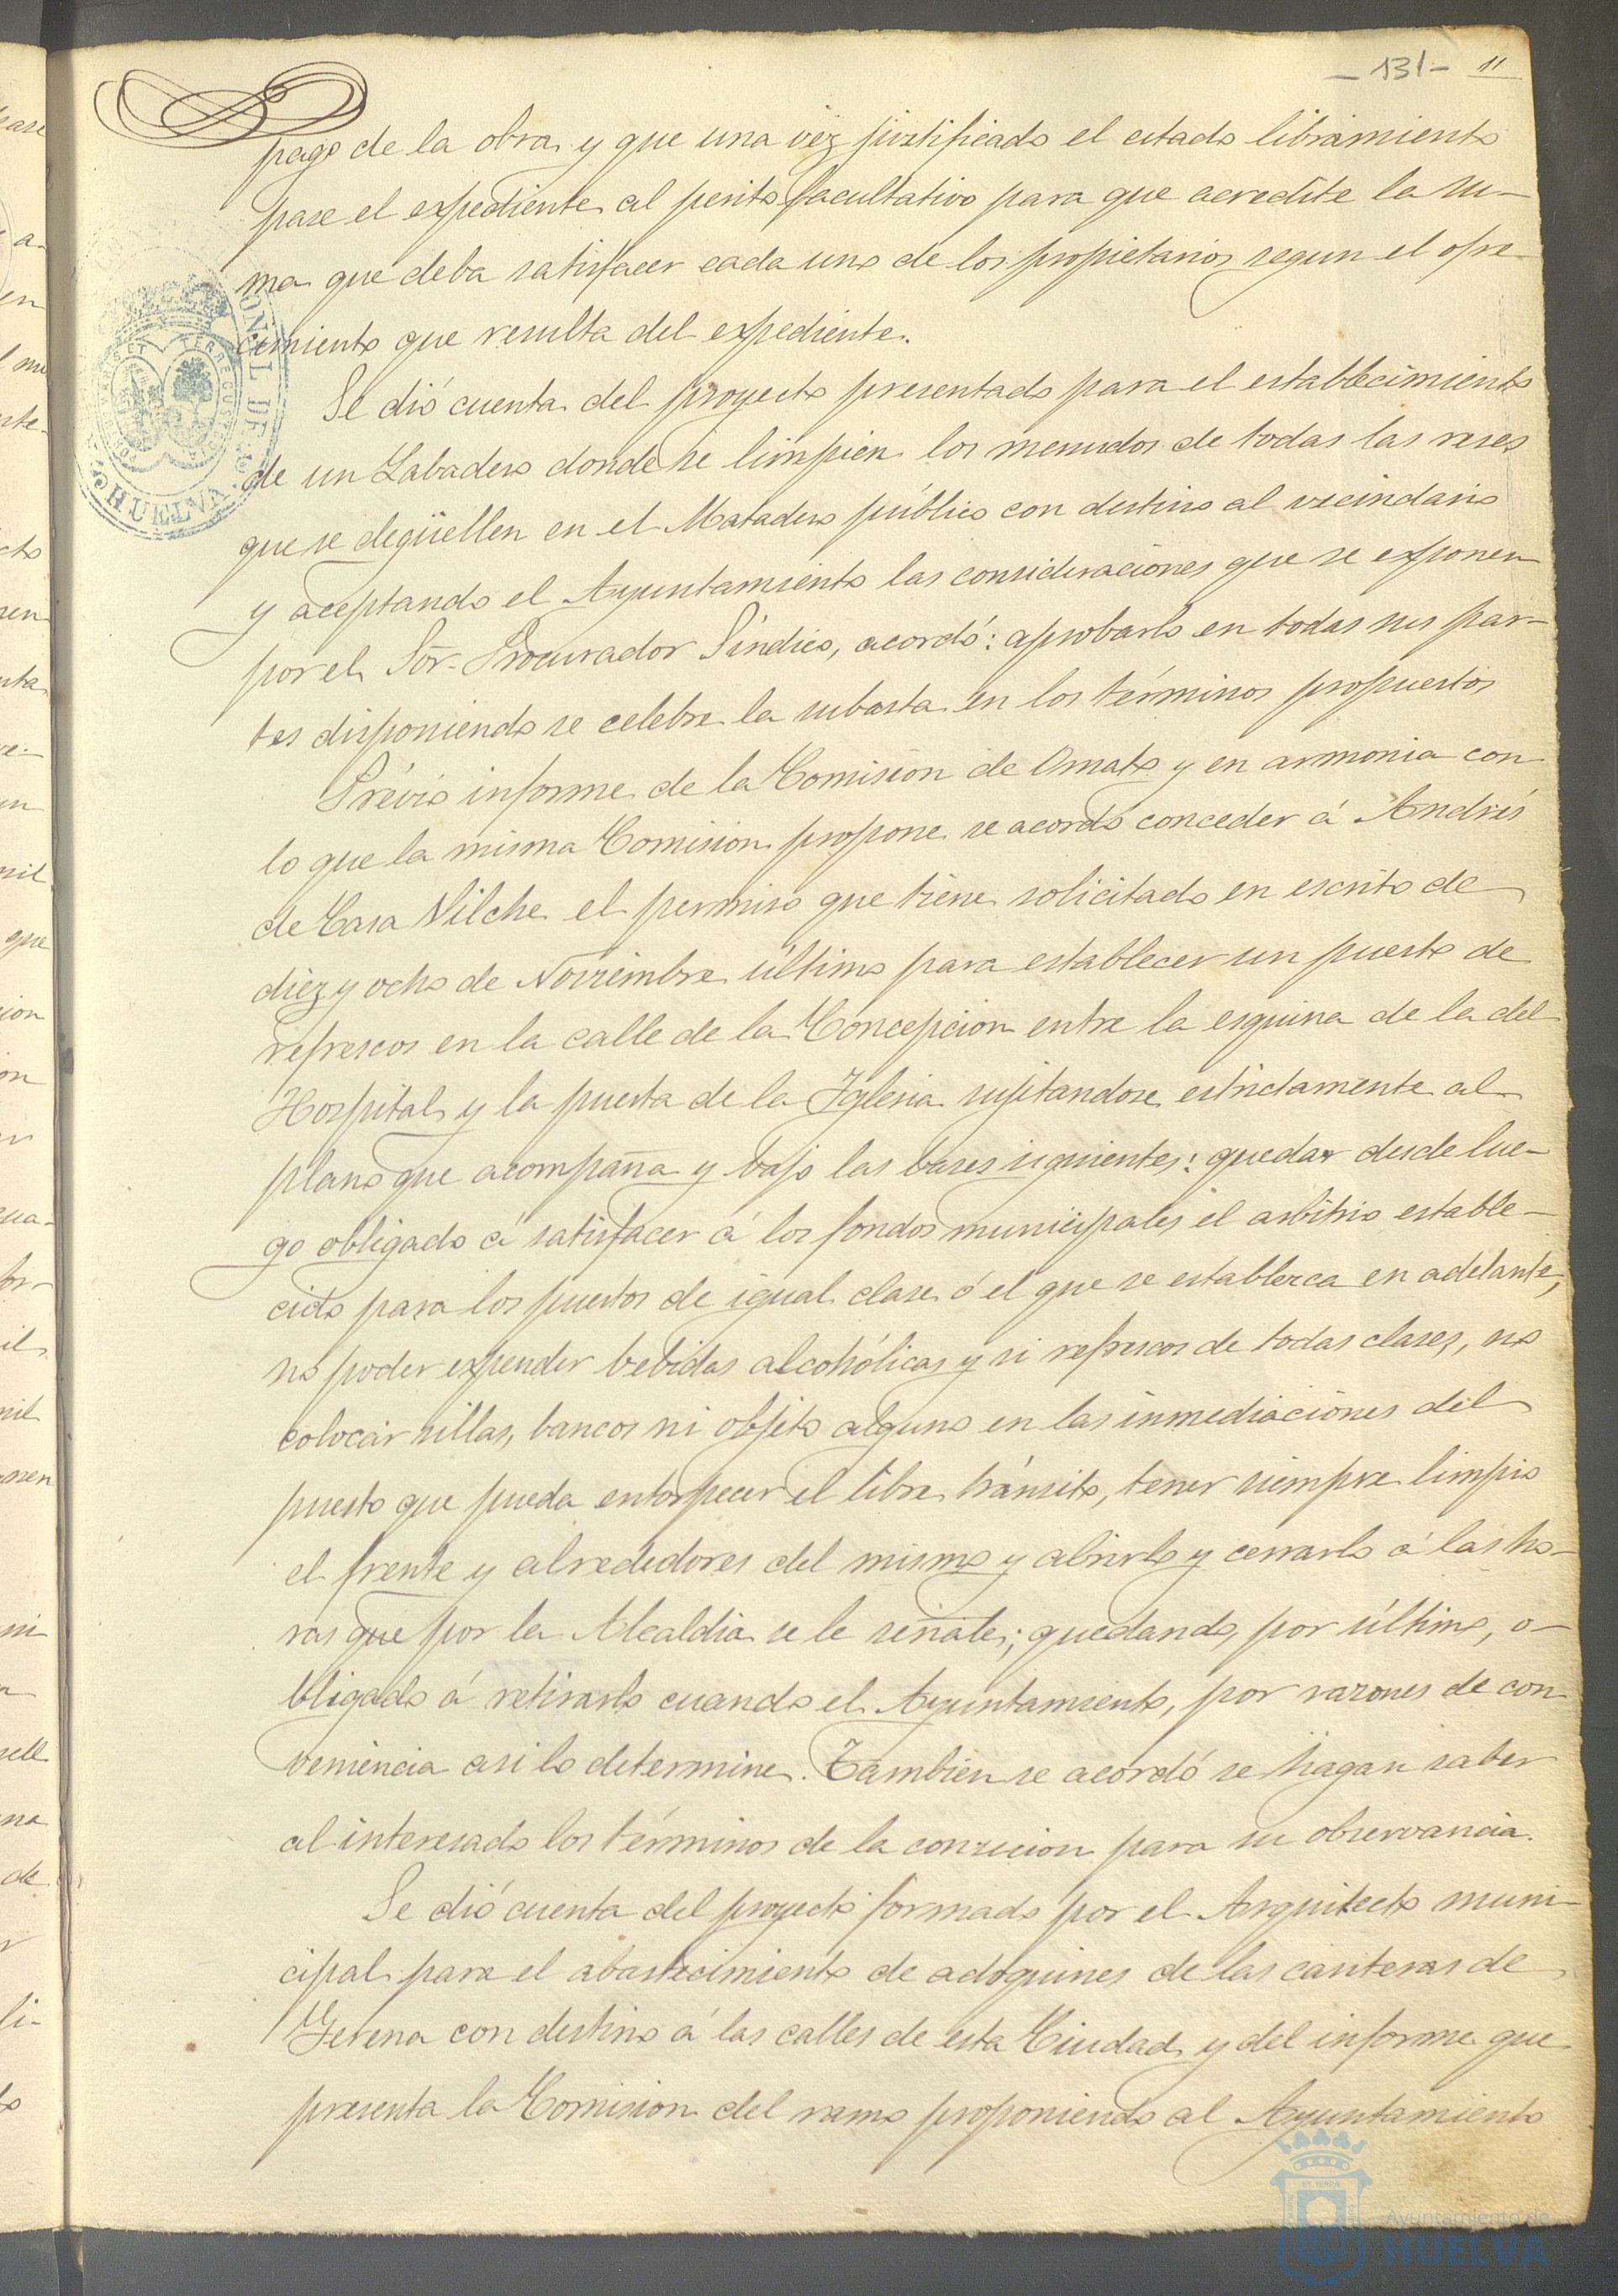 - 131 - 11
pago de la obra y que una véz justificado el citado libramiento
pase el expediente al perito facultativo para que acredite la su-
ma que deba satisfacer cada uno de los propietarios segun el ofre-
cimiento que resulta del expediente.
Se dió cuenta del proyecto presentado para el establecimiento
de un Labadero donde se limpien los menudos de todas las reses
que se degüellen en el Matadero público con destino al vecindario
y aceptando el Ayuntamiento las consideraciones que se exponen
por el Sõr. Procurador Síndico, acordó: aprobarlo en todas sus par-
tes disponiendo se celebre la subasta en los términos propuestos
Prévio informe de la Comision de Ornato y en armonia con
lo que la misma Comision propone se acordó conceder á Andrés
de Casa Vilche el permiso que tiene solicitado en escrito de
diez y ocho de Noviembre último para establecer un puesto de
refrescos en la calle de la Concepcion entre la esquina de la del
Hospital y la puerta de la Iglesia sujetandose estrictamente al
plano que acompaña y bajo las bases siguientes: quedar desde lue-
go obligado á satisfacer á los fondos municipales el arbitrio estable-
cido para los puestos de igual clase ó el que se establezca en adelante,
no poder expender bebidas alcohólicas y si refrescos de todas clases, no
colocar sillas, bancos ni objeto alguno en las inmediaciones del
puesto que pueda entorpecer el libre tránsito, tener siempre limpio
el frente y alrededores del mismo y abrirlo y cerrarlo á las ho-
ras que por la Alcaldia se le señale; quedando, por último, o-
bligado á retirarlo cuando el Ayuntamiento, por razones de con
veniencia asi lo determine. Tambien se acordó se hagan saber
al interesado los términos de la consecion para su observancia.
Se dió cuenta del proyecto formado por el Arquitecto muni-
cipal para el abastecimiento de adoquines de las canteras de
Gerena con destino á las calles de esta Ciudad y del informe que
presenta la Comision del ramo proponiendo al Ayuntamiento
HUELVA
Ayuntamiento de
HUELVA